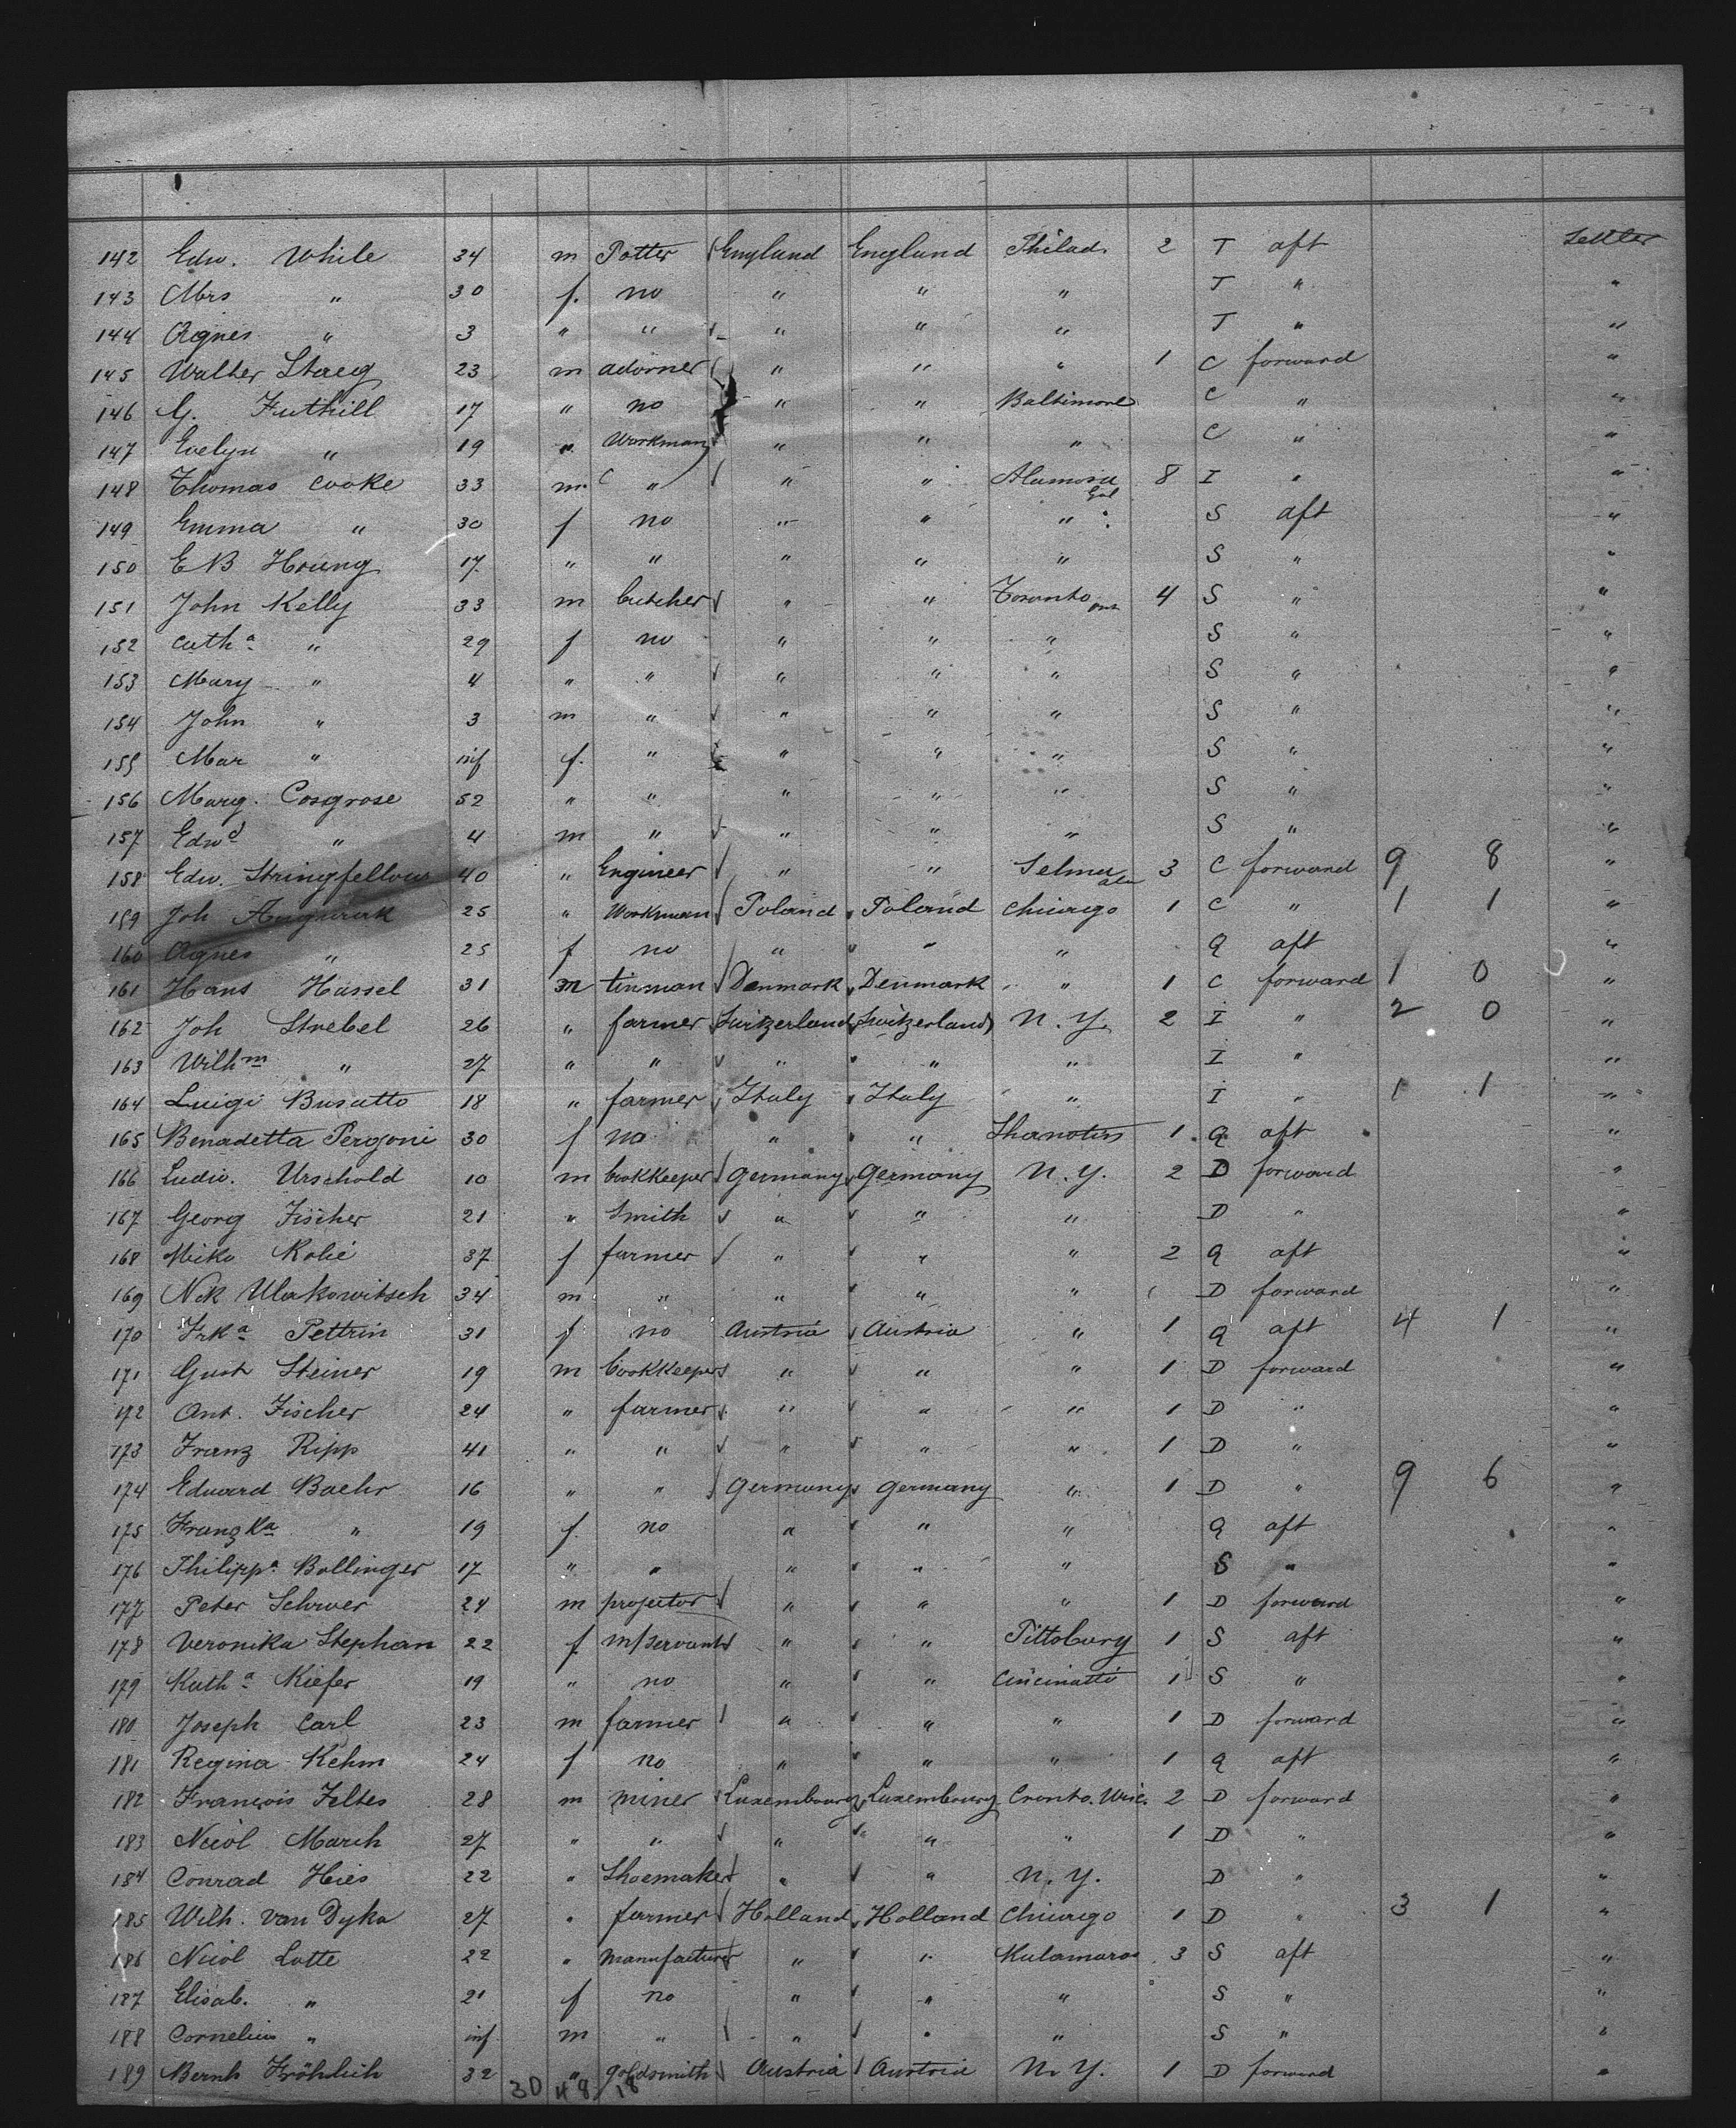 142 Edw. While 34 m Potter England England Philad. 2 T aft Settler
143 Mrs " 30 f. no " " " T " "
144 Agnes " 3 " " " " " T " "
145 Walter Staeg 23 m adorner " " " 1 C forward "
146 G. Futhill 17 " no " " Baltimore C " "
147 Evelyn " 19 " Workman " " " C " "
148 Thomas Cooke 33 m " " " Alamosa 8 I " "
149 Emma " 30 f no " " " S aft "
150 E B Houng 17 " " " " " S " "
151 John Kelly 33 m butcher " " Toronto ont 4 S " "
152 Cath.a " 29 f no " " " S " "
153 Mary " 4 " " " " " S " "
154 John " 3 m " " " " S " "
155 Mar " inf f. " " " " S " "
156 Marg. Cosgrose 52 " " " " " S " "
157 Edwd " 4 m " " " " S " "
158 Edw. Stringfellow 40 " Engineer " " Selma ala 3 C forward 9 8 "
159 Joh 25 " Workman Poland Poland Chicago 1 C " 1 1 "
160 Agnes " 25 f no " " " Q aft "
161 Hans Hassel 31 m tinsman Denmark Denmark " 1 C forward 1 0 "
162 Joh Strebel 26 " farmer Switzerland Switzerland N. Y. 2 I " 2 0 "
163 Wilhm " 27 " " " " " I " "
164 Luigi Busatto 18 " farmer Italy Italy " I " 1 1 "
165 Benadetta Pergoni 30 f no " " 1 Q aft "
166 Ludw. Urschold 10 m bookkeeper Germany Germany N. Y. 2 D forward "
167 Georg Fischer 21 " Smith " " " D " "
168 Miko Rolie 37 f farmer " " " 2 Q aft "
169 Nik Ulakowitsch 34 m " " " " D forward "
170 Frka Pettrin 31 f no Austria Austria " 1 Q aft 4 1 "
171 Gust Steiner 19 m bookkeeper " " " 1 D forward "
172 Ant. Fischer 24 " farmer " " " 1 D " "
173 Franz Ripp 41 " " " " " 1 D " "
174 Eduard Baehr 16 " " Germany Germany " 1 D " 9 6 "
175 Franzka " 19 f. no " " " Q aft "
176 Philippa Bollinger 17 " " " " " S " "
177 Peter Schwer 24 m projector " " " 1 D forward "
178 Veronika Stephan 22 f m/servant " " Pittsburg 1 S aft "
179 Katha Kiefer 19 " no " " Cincinatti 1 S " "
180 Joseph Carl 23 m farmer " " " 1 D forward "
181 Regina Kehm 24 f no " " " 1 Q aft "
182 François Feltes 28 m miner Luxembourg Luxembourg Cronto. Wisc. 2 D forward "
183 Nicol March 27 " " " " " 1 D " "
184 Conrad Hies 22 " Shoemaker " " N. Y. D " "
185 Wilh. van Dyka 27 " farmer Holland Holland Chicago 1 D " 3 1 "
186 Nicol Lotte 22 " manufacturer " " Kalamaroo 3 S aft "
187 Elisab. " 21 f no " " " S " "
188 Cornelius " inf m " " " " S " "
189 Bernh Fröhlich 32 " goldsmith Austria Austria N. Y. 1 D forward "
30 48 18